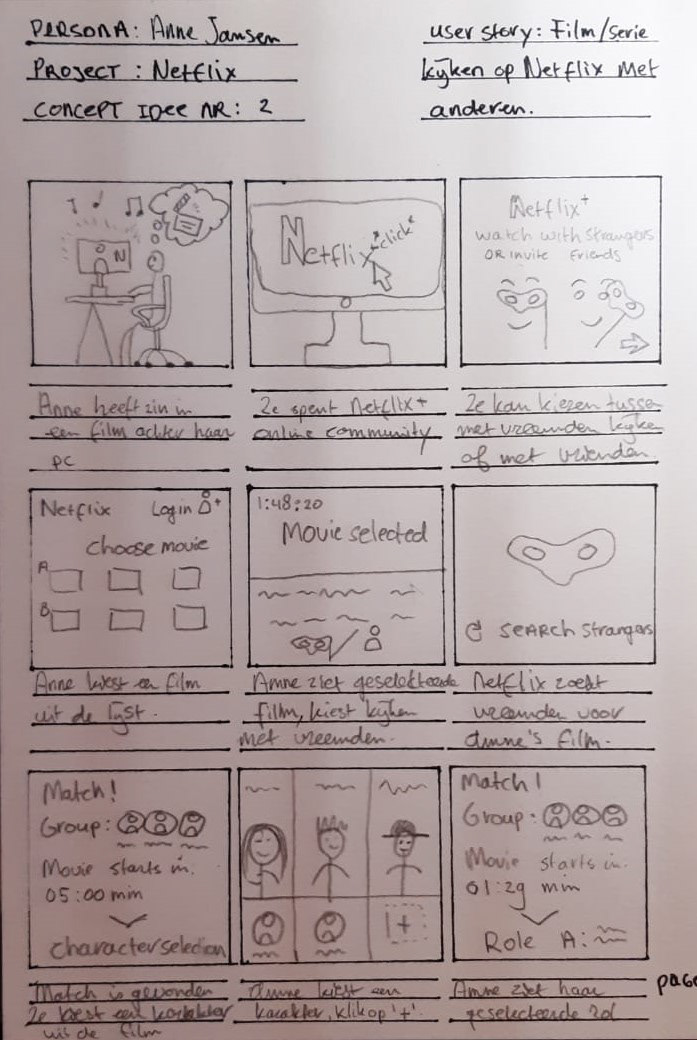 PERSONA: Anne Jansen
PROJECT : Netflix
CONCEPT IDEE NR: 2
user story: Film/serie
kijken op Netflix met
anderen.
N
Netflix
"click"
Netflix+
watch with strangers
OR invite friends
Anne heeft zin in
een film achter haar
pc
Ze opent Netflix+
online community
Ze kan kiezen tussen
met vreemden kijken
of met vrienden.
Netflix Login
choose movie
A
B
1:48:20
Movie selected
SEARCH strangers
Anne kiest een film
uit de lijst.
Anne ziet geselekteerde
film, kiest kijken
met vreemden.
Netflix zoekt
vreemden voor
Anne's film.
Match!
Group:
Movie starts in.
05:00 min
characterselection
+
Match!
Group:
Movie starts in.
01:29 min
Role A:
Match is gevonden
Ze kiest een karakter
uit de film
Anne kiest een
karakter, klik op '+'.
Anne ziet haar
geselecteerde rol